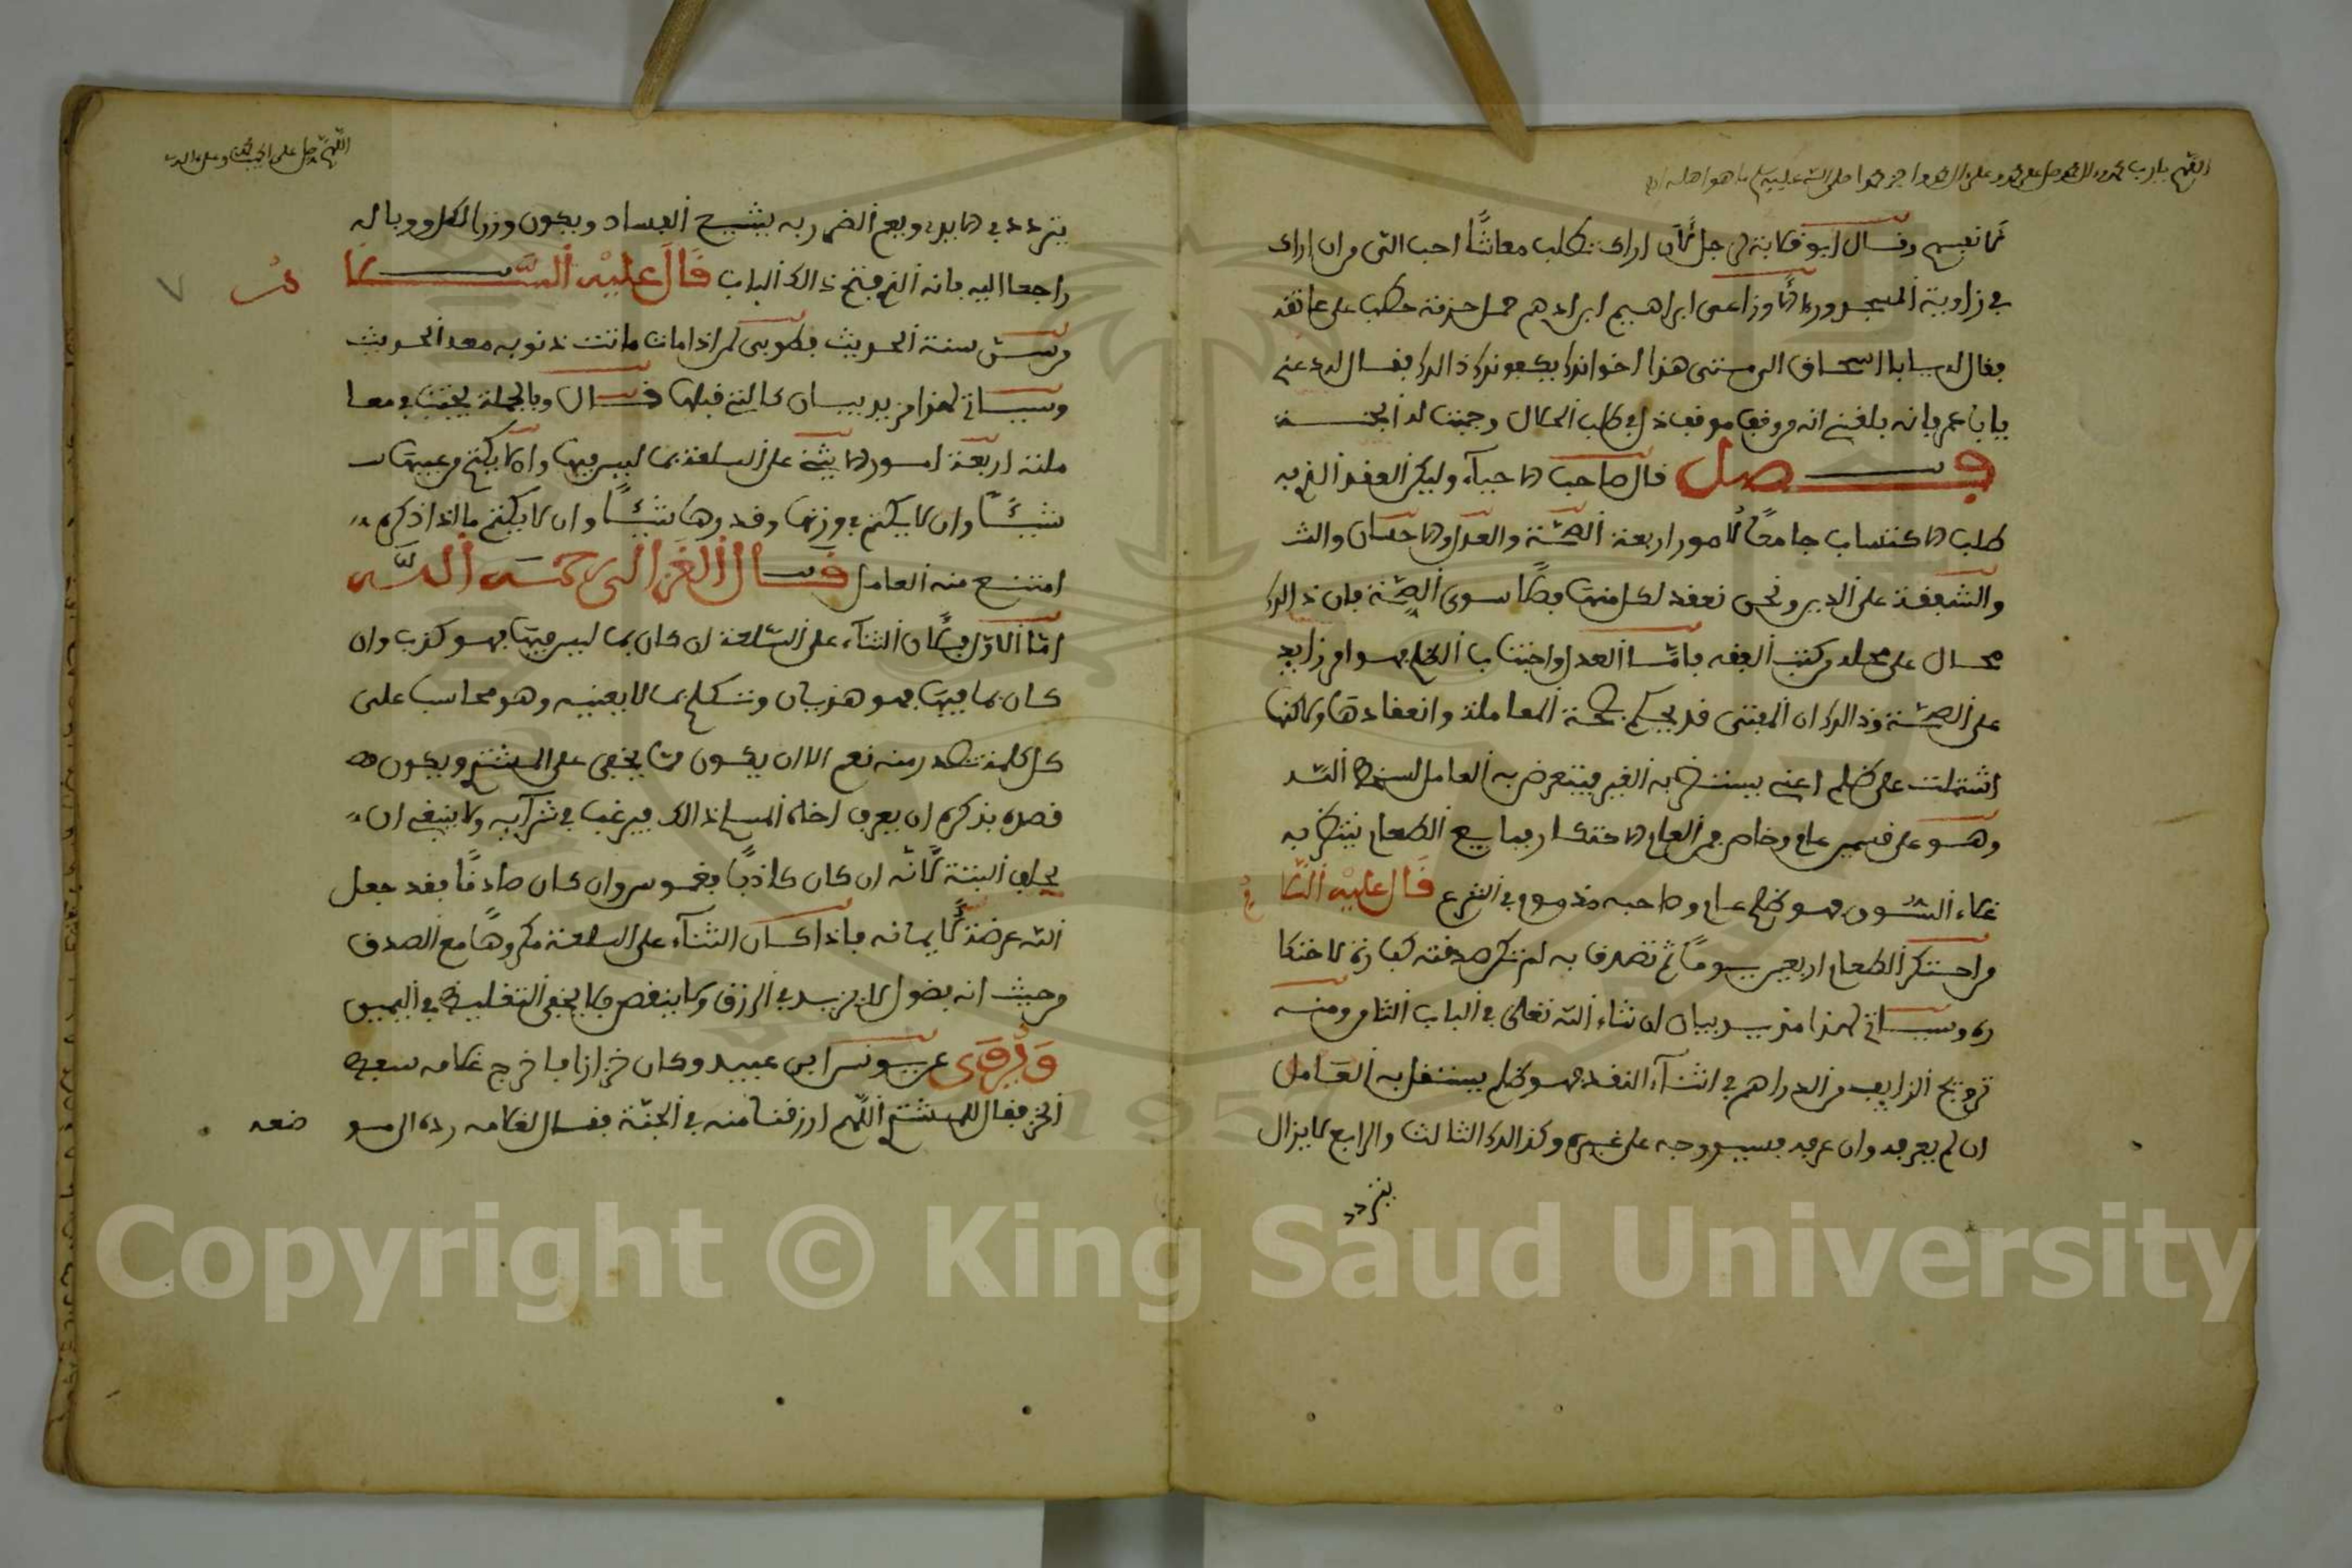 اللهم يا رب محمد وءال محمد صل على محمد وعلى ءال محمد واجز محمدا صلى الله عليه وسلم ما هو اهله
لا نفيسم وقال ابو قلابة لرجل لأن اراك تطلب معاشا احب الي من ان اراك
في زاوية المسجد وروي ان الاوزاعي ابراهيم ابن ادهم حمل حزمة حطب على عاتقه
فقال له يا ابا اسحاق الى متى هذا اخوانك يكفونك ذالك فقال له دعني
يا ابا عمر فإنه بلغني انه من وقف موقف ذل في طلب الحلال وجبت له الجنة
فصل قال صاحب الاحياء وليكن العقد الذي به
طلب الاكتساب جامعا لأمور اربعة الصحة والعدل والاحسان والش
والشفقة على الدين ونحن نعقد لكل منها فصلا سوى الصحة فإن ذالك
محال على محله من كتب الفقه فأما العدل واجتناب الظلم فهو امر زايد
على الصحة وذالك ان المفتي قد يحكم بصحة المعاملة وانعقادها ولاكنها
اشتملت على ظلم اعني يستضر به الغير فيتعرض به العامل لسخط الله
وهو على قسمين عام وخاص فمن العام الاحتكار فبايع الطعام ينتظر به
غلاء السوق فهو ظلم عام وصاحبه مذموم في الشرع قال عليه السلام
من احتكر الطعام اربعين يوما ثم تصدق به لم تكن صدقته كفارة لاحتكا
ره وسياتي لهذا مزيد بيان ان شاء الله تعالى في الباب الثامن ومنه
ترويج الزايف من الدراهم في اثناء النقد فهو ظلم يستضر به العامل
ان لم يعرفه وان عرفه فسيروجه على غيره وكذالك الثالث والرابع لا يزال
يتردد
اللهم صل على الحبيب محمد وعلى ءاله
يتردد في الايدي ويعم الضرر به يشيع الفساد ويكون وزر الكل ووباله
راجعا اليه فإنه الذي فتح ذالك الباب قال عليه السلام من
من سن سنة الحديث فطوبى لمن اذا مات ماتت ذنوبه معه الحديث
وسياتي لهذا مزيد بيان كالتي قبلها قال وبالجملة يجتنب في معا
ملته اربعة امور الا يثني على السلعة بما ليس فيها والا يكتم من عيبها
شيئا وان لا يكتم في وزنها وقدرها شيئا وان لا يكتم ما اذا ذكره
امتنع منه العامل قال الغزالي رحمه الله
اما الاول فلأن الثناء على السلعة ان كان بما ليس فيها فهو كذب وان
كان بما فيها فهو هذيان وتكلم بما لا يعنيه وهو محاسب على
كل كلمة تصدر منه نعم الا ان يكون مما يخفى على المشتري ويكون
قصده بذكره ان يعرف اخاه المسلم ذالك فيرغب في شرآيه ولا ينبغي ان
يحلف البتة لأنه ان كان كاذبا فغموس وان كان صادقا فقد جعل
الله عرضة لأيمانه فإذا كان الثناء على السلعة مكروها مع الصدق
من حيث انه فضول لا يزيد في الرزق ولا ينقص فلا يخفى التغليظ في اليمين
وروى عن يونس ابن عبيد وكان خزازا فاخرج غلامه سفط
الخز فقال للمشتري اللهم ارزقنا منه في الجنة فقال لغلامه رده الى مو
ضعه
٧
Copyright © King Saud University
1957